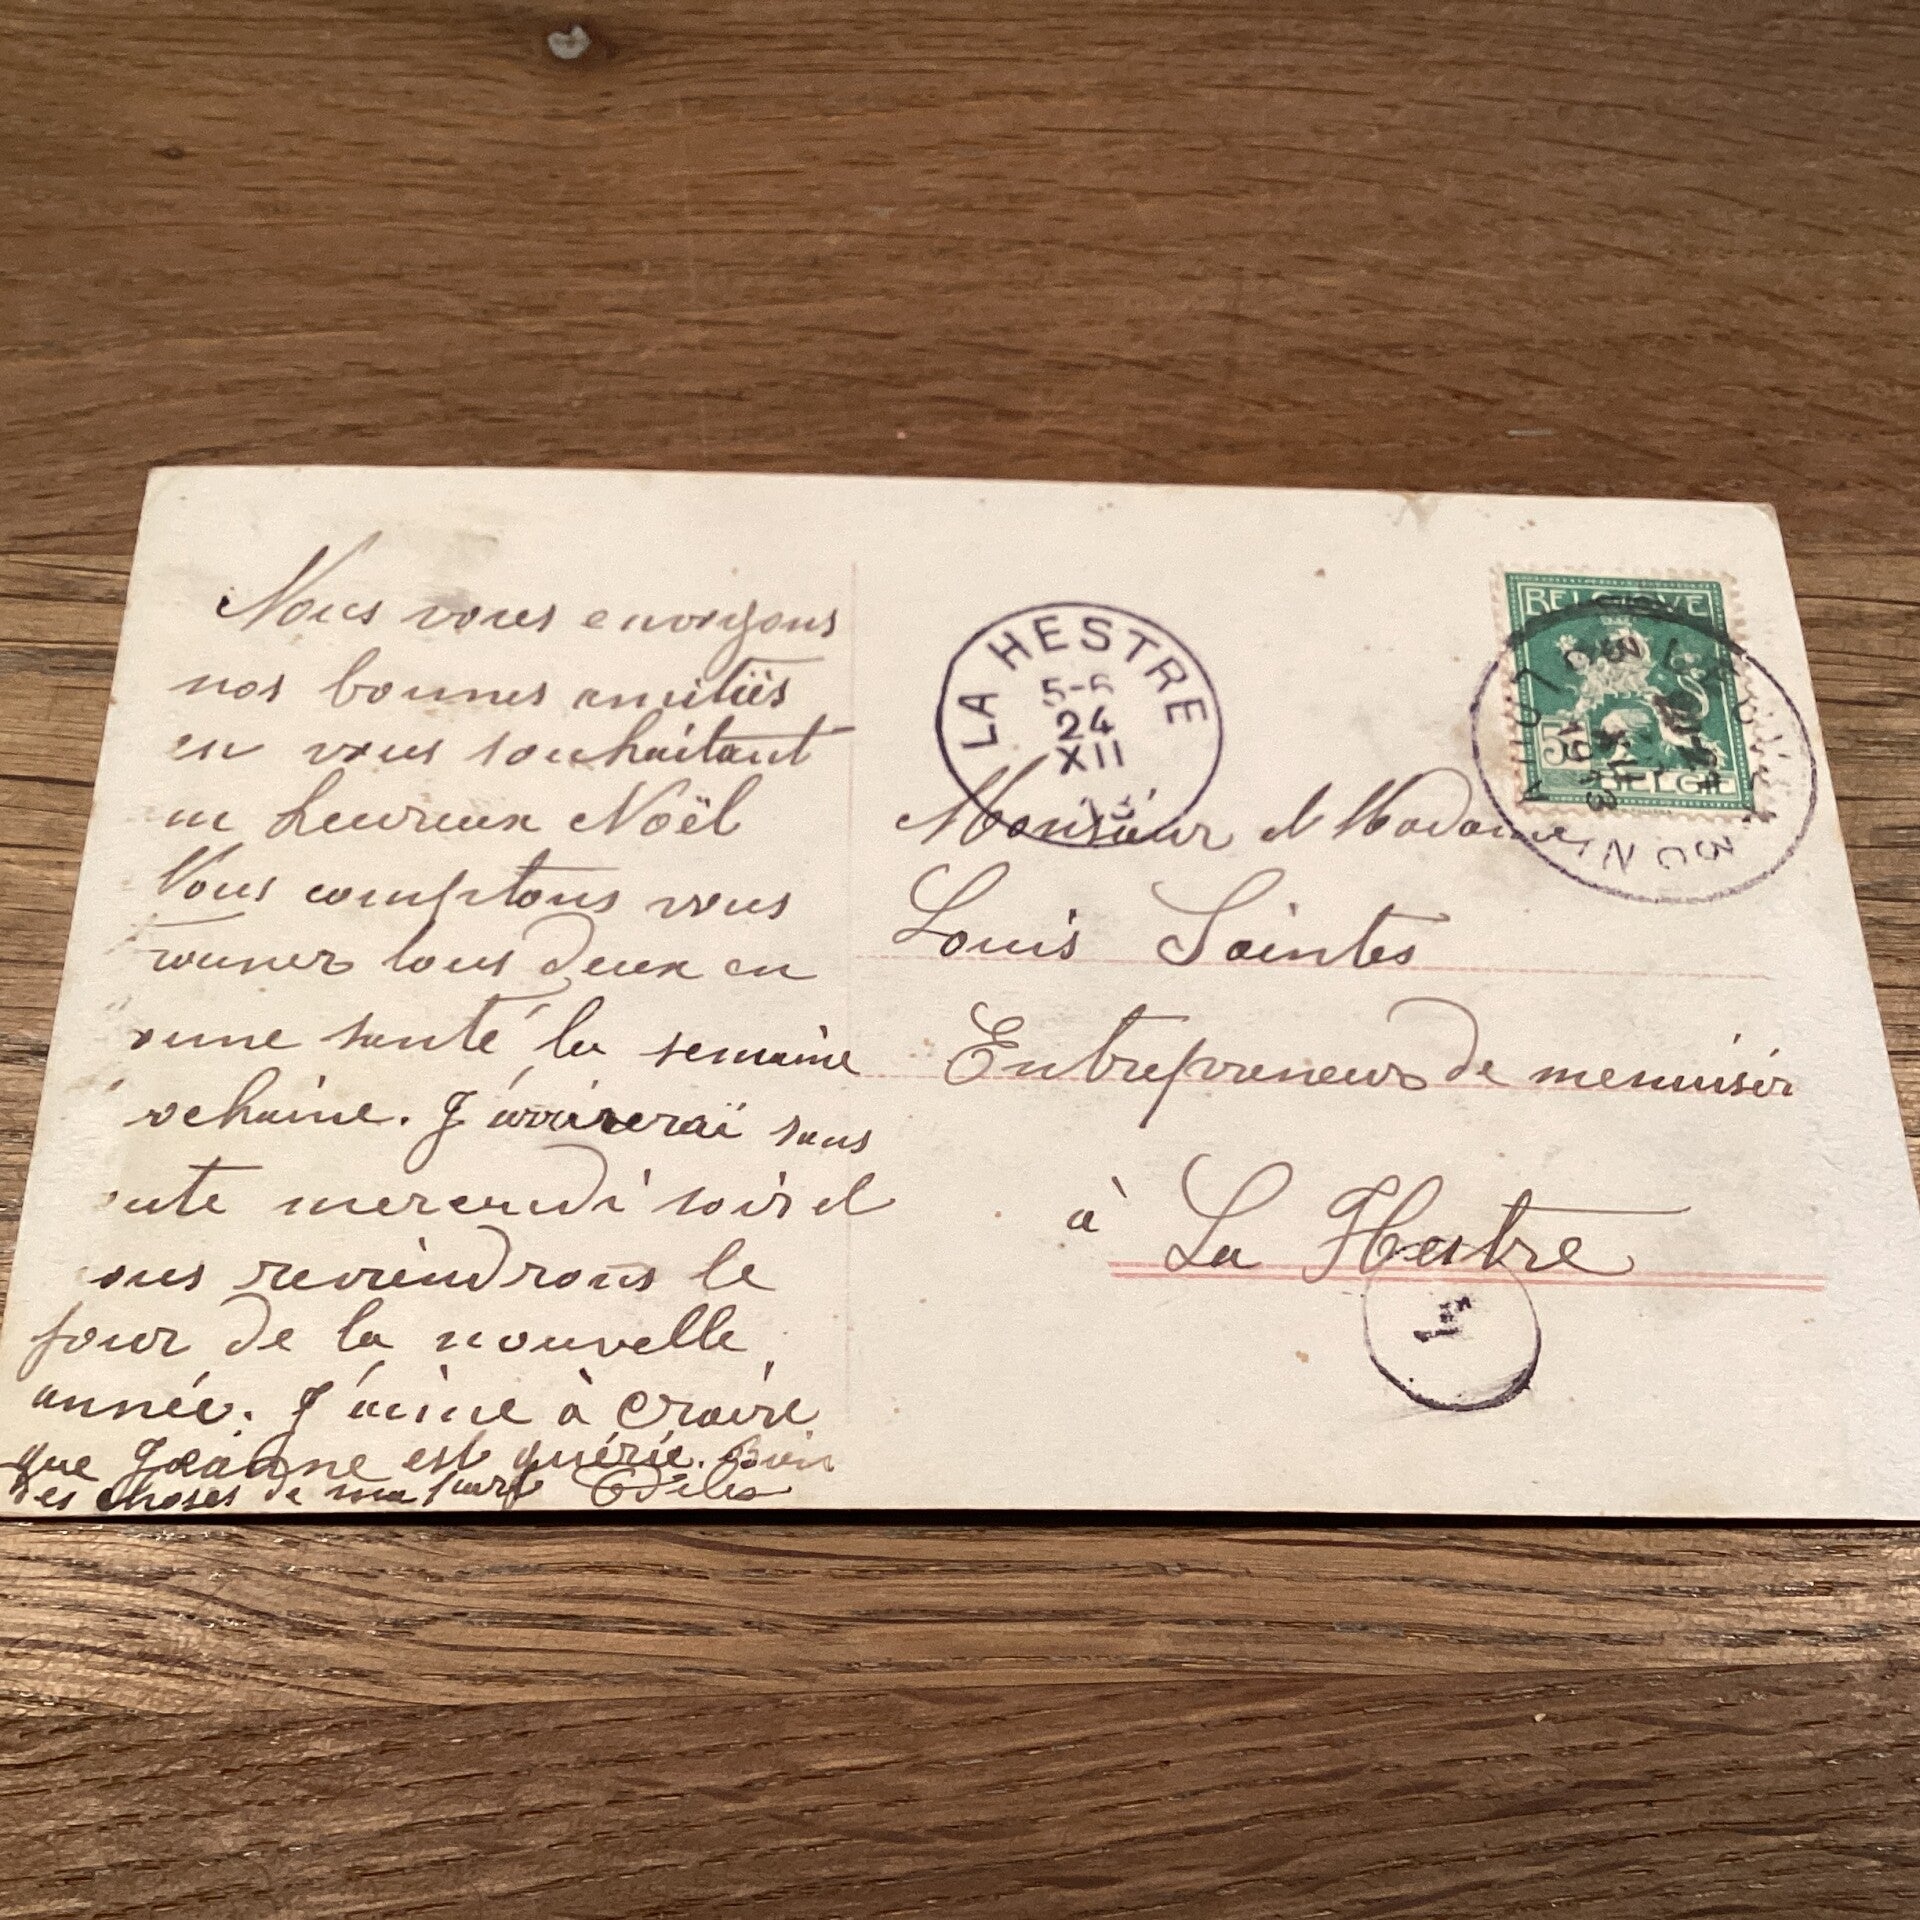 Nous vous envoyons
nos bonnes amitiés
en vous souhaitant
un heureux Noël
Nous comptons vous
trouver tous deux en
bonne santé la semaine
prochaine. J'arriverai sans
doute mercredi soir et
nous reviendrons le
jour de la nouvelle
année. J'aime à croire
que Jeanne est guérie. Bien
des choses de ma part
LA HESTRE
5-6
24
XII
13
BELGIQUE
5
BELGIË
1913
Monsieur et Madame
Louis Saintes
Entrepreneur de menuiserie
à La Hestre
1